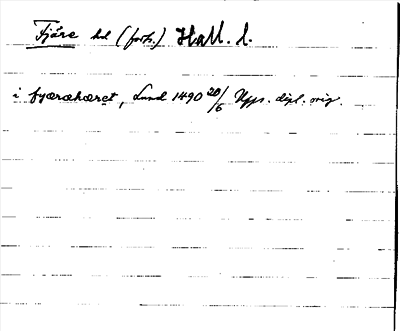 Fjäre hd (forts.) Hall. l.
i fyæræhæret, Lund 1490 20/6 Upps. dipl. orig.